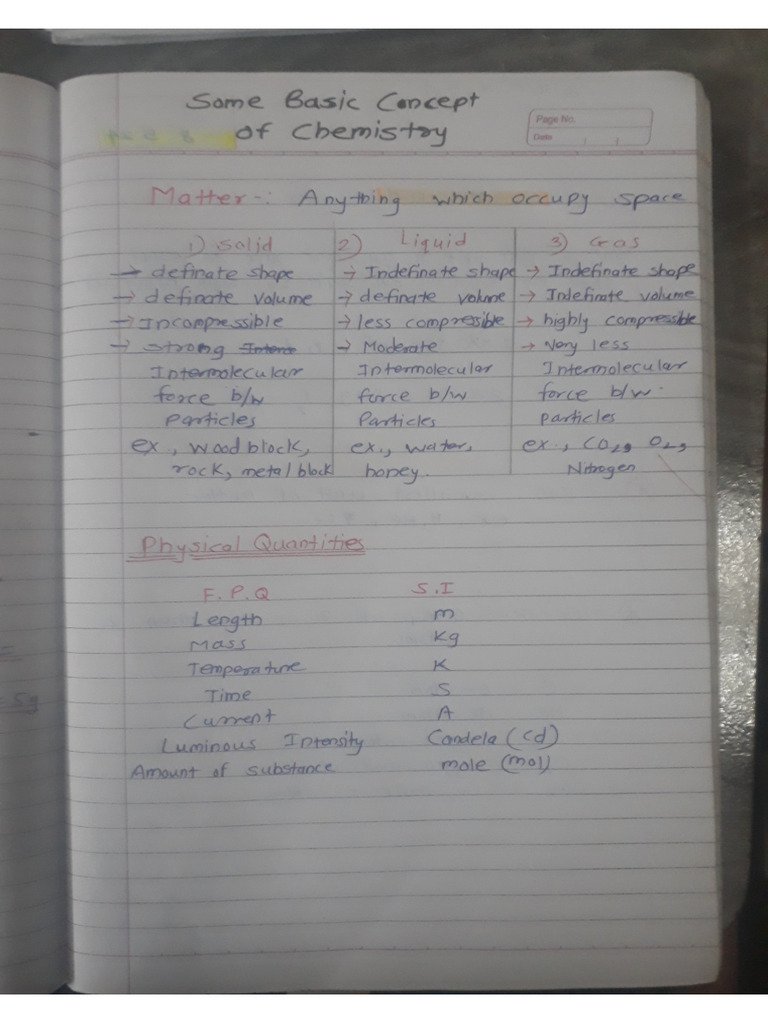 Some Basic Concept
of Chemistry
Page No.
Date
Matter -: Anything which occupy space
1) Solid 2) Liquid 3) Gas
→ definate shape → Indefinate shape → Indefinate shape
→ definate volume → definate volume → Indefinate volume
→ Incompressible → less compressible → highly compressible
→ strong → Moderate → Very less
Intermolecular Intermolecular Intermolecular
force b/w force b/w force b/w
particles Particles particles
ex., wood block, ex., water, ex., CO2, O2,
rock, metal block honey. Nitrogen
Physical Quantities
F.P.Q S.I
Length m
Mass Kg
Temperature K
Time S
Current A
Luminous Intensity Candela (cd)
Amount of substance mole (mol)